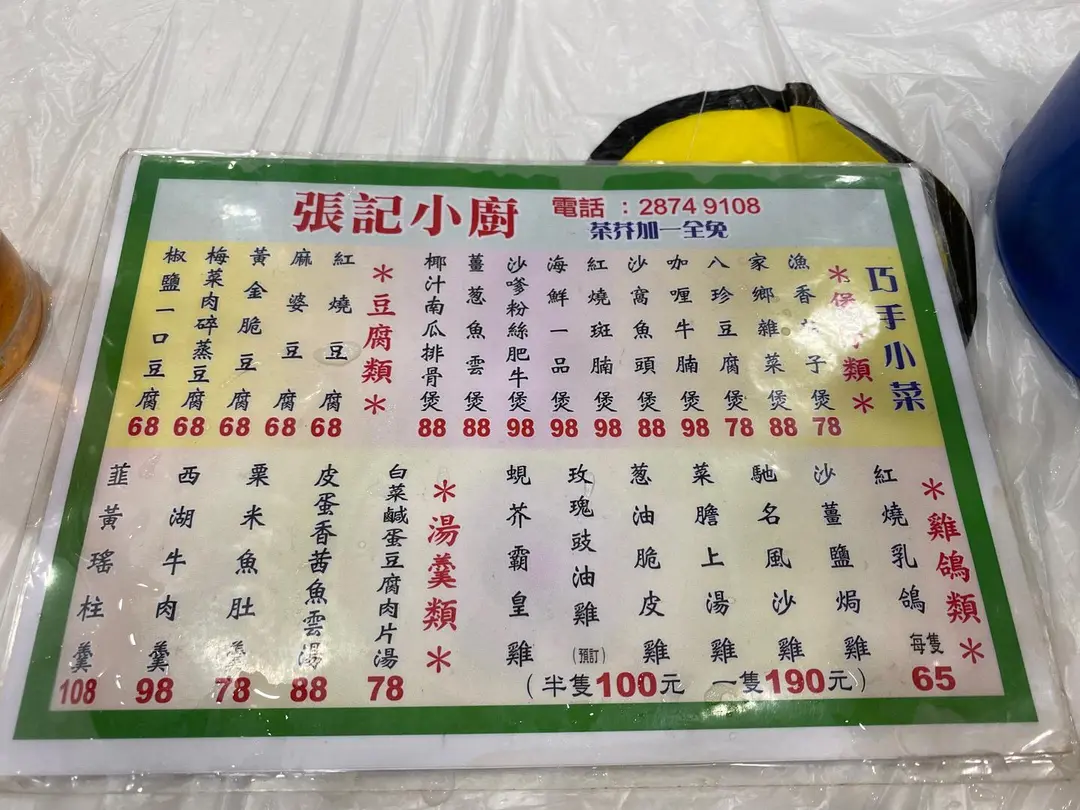 張記小廚
電話：2874 9108
茶芥加一全免
巧手小菜
*煲仔類*
漁香茄子煲 78
家鄉雜菜煲 88
八珍豆腐煲 78
咖喱牛腩煲 98
沙窩魚頭煲 88
紅燒斑腩煲 98
海鮮一品煲 98
沙嗲粉絲肥牛煲 98
薑葱魚雲煲 88
椰汁南瓜排骨煲 88
*豆腐類*
紅燒豆腐 68
麻婆豆腐 68
黃金脆豆腐 68
梅菜肉碎蒸豆腐 68
椒鹽一口豆腐 68
*雞鴿類*
紅燒乳鴿 每隻 65
沙薑鹽焗雞
馳名風沙雞
菜膽上湯雞
葱油脆皮雞
玫瑰豉油雞 (預訂)
蜆芥霸皇雞
(半隻100元 一隻190元)
*湯羹類*
白菜鹹蛋豆腐肉片湯 78
皮蛋香茜魚雲湯 88
栗米魚肚羹 78
西湖牛肉羹 98
韮黃瑤柱羹 108